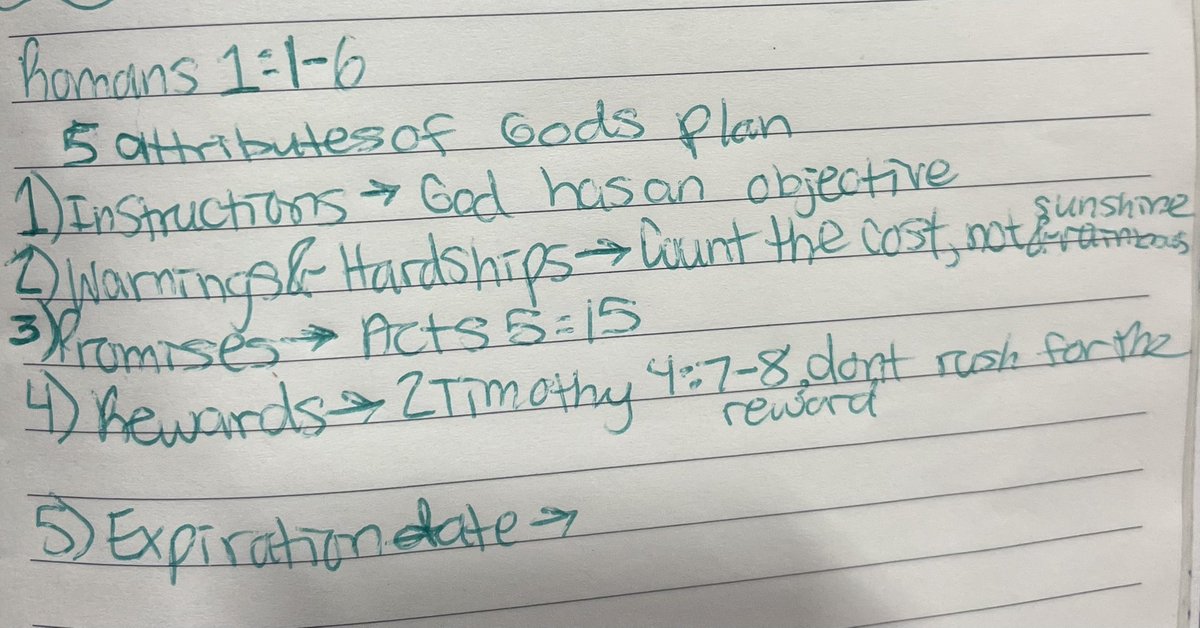 Romans 1:1-6
5 attributes of Gods plan
1) Instructions → God has an objective
2) Warnings & Hardships → Count the cost, not sunshine & rainbows
3) Promises → Acts 5:15
4) Rewards → 2 Timothy 4:7-8, don't rush for the reward
5) Expiration date →